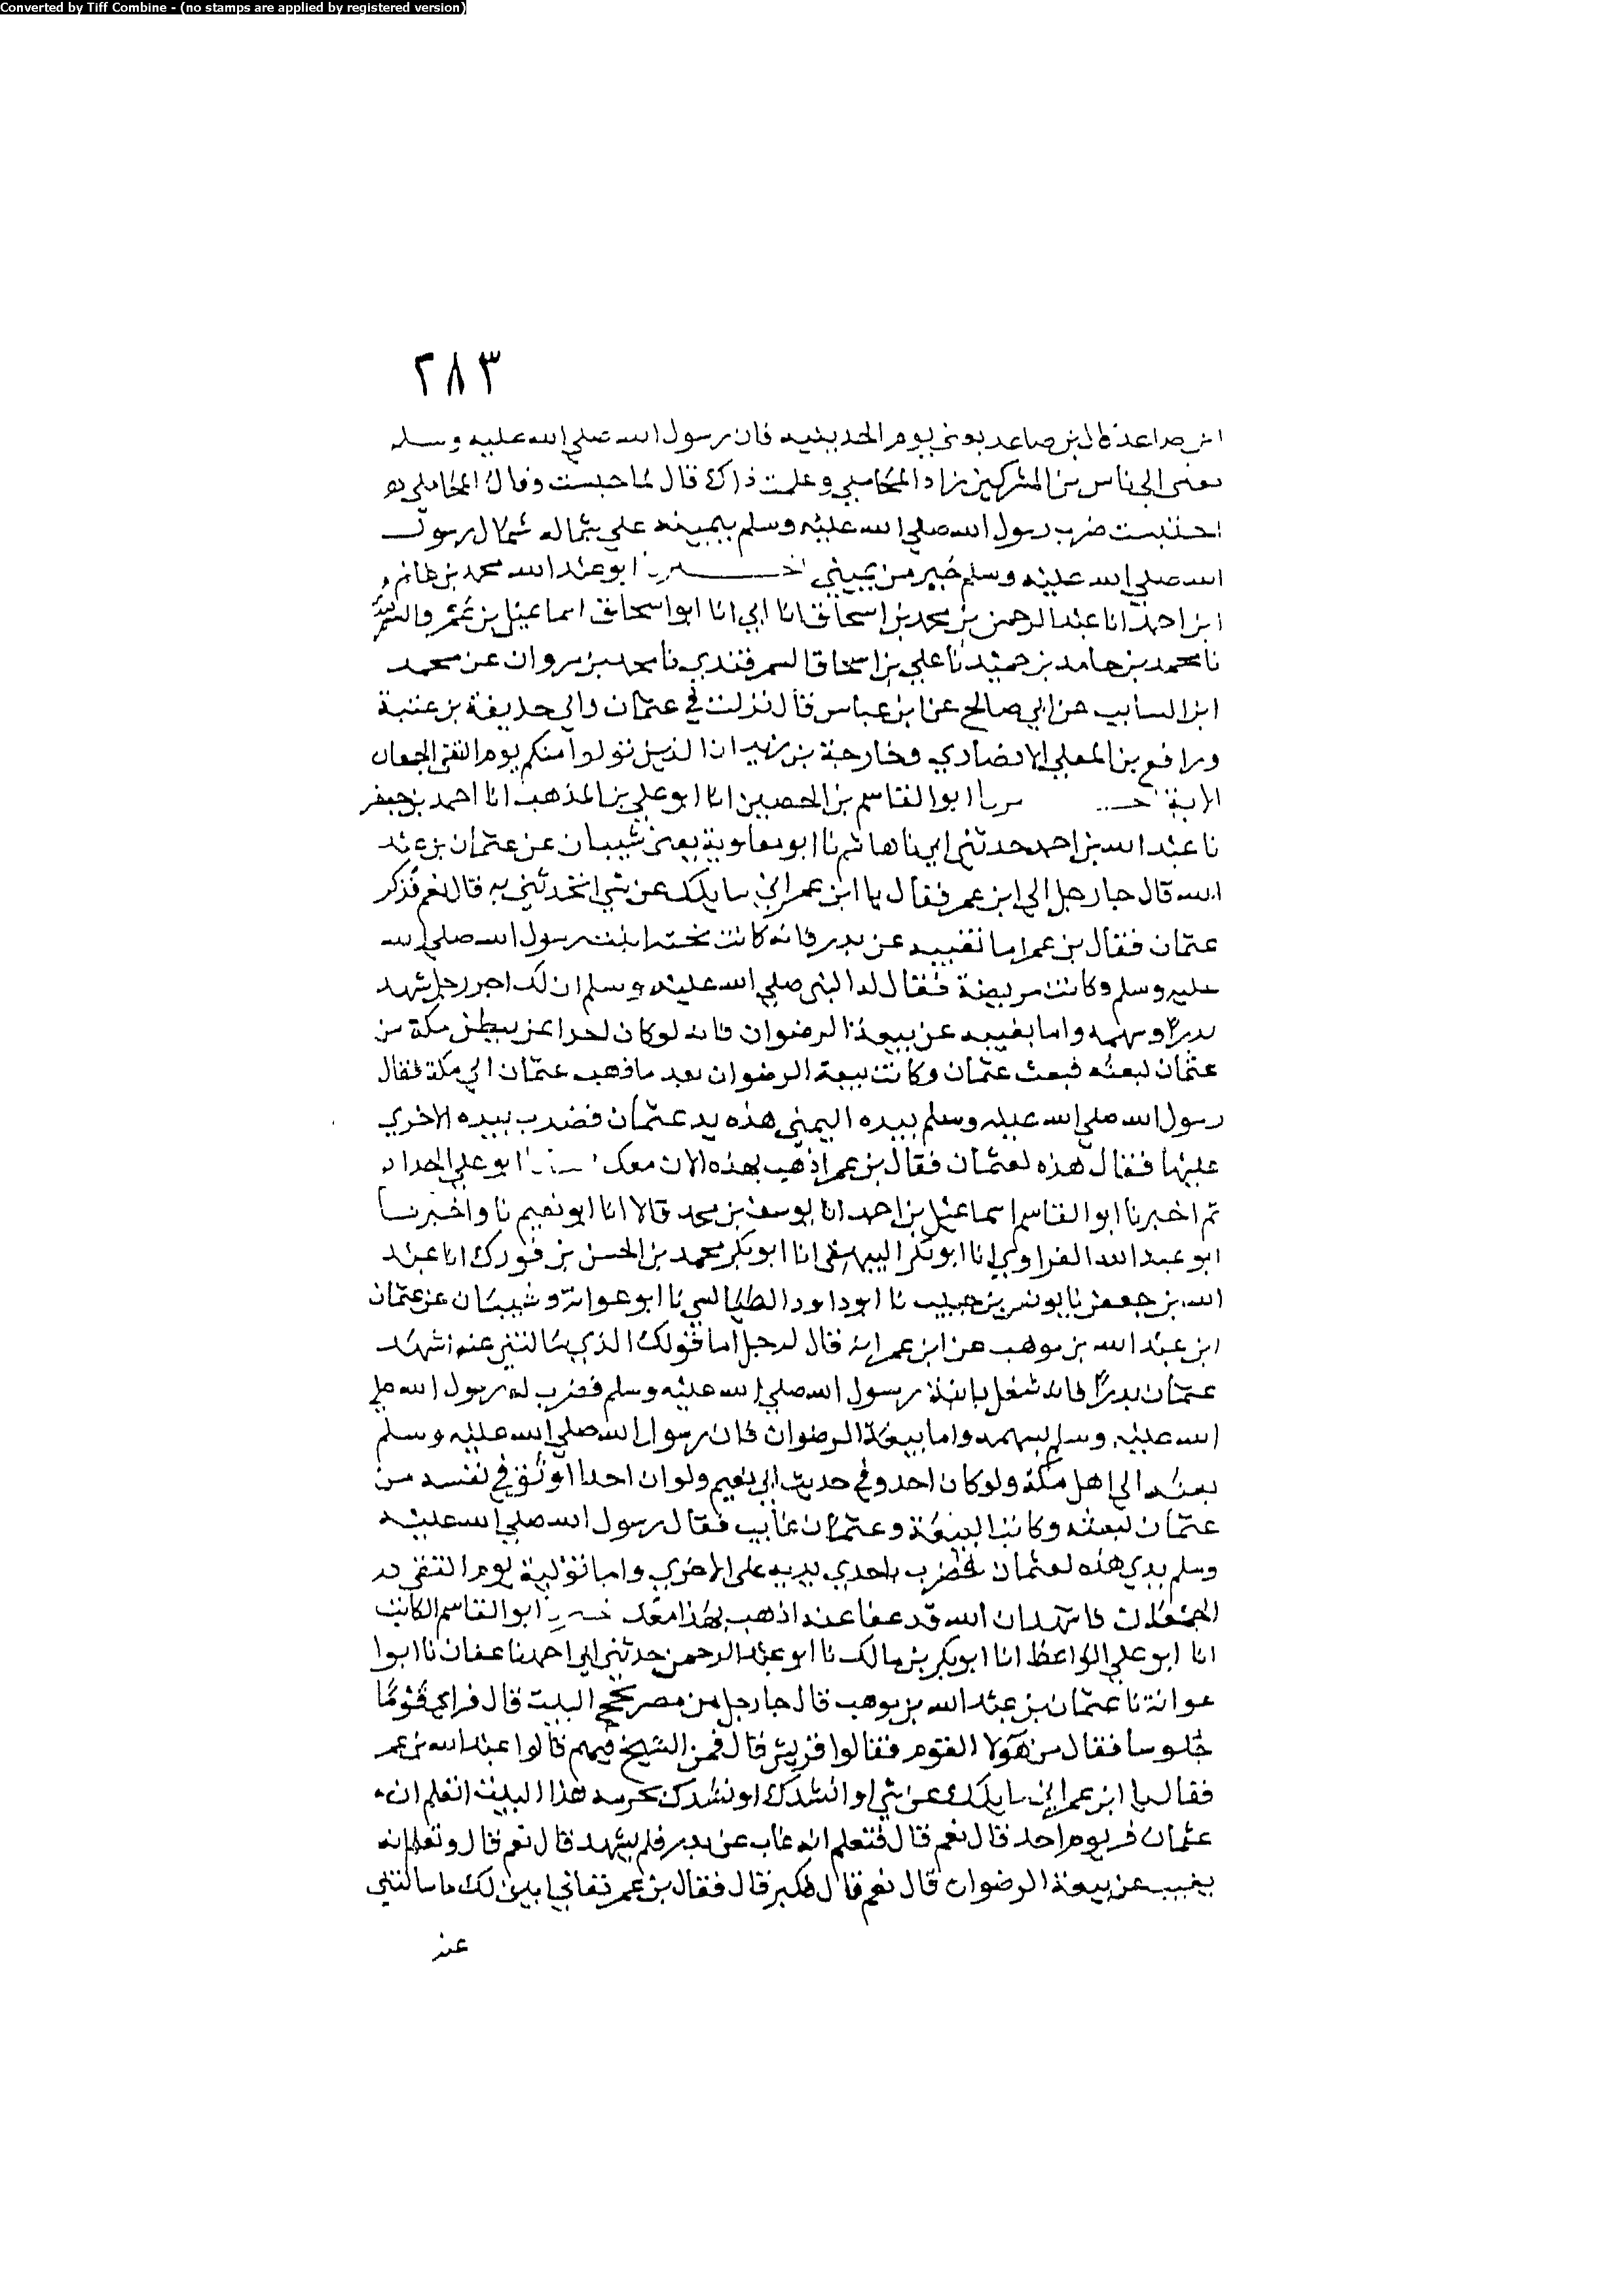 Converted by Tiff Combine - (no stamps are applied by registered version)
٢٨٣
ابن صاعد قال بن صاعد يوم الحديبية فان رسول الله صلى الله عليه وسلم
بعثني الى ناس من المشركين زاد المحاملي وعلمت ذاك قال لما حبست وقال المحاملي
احتبست ضرب رسول الله صلي الله عليه وسلم بيمينه علي شماله شمال رسول
الله صلي الله عليه وسلم خير من يميني اخبرنا ابو عبد الله محمد بن غانم
ابن احمد انا عبد الرحمن بن محمد بن اسحاق انا ابي انا ابو اسحاق اسماعيل بن
نا محمد بن حامد بن حميد نا علي بن اسحاق السمرقندي نا محمد بن مروان عن محمد
ابن السايب عن ابي صالح عن ابن عباس قال نزلت في عثمان وابي حذيفة بن عتبة
ورافع بن المعلي الانصاري وخارجة بن زيد ان الذين تولوا منكم يوم التقى الجمعان
الاية اخبرنا ابو القاسم بن الحصين انا ابو علي بن المذهب انا احمد بن جعفر
نا عبد الله بن احمد حدثني ابي نا هاشم نا ابو معاوية يعني شيبان عن عثمان بن عبد
الله قال جا رجل الي ابن عمر فقال يا ابن عمر اني سايلك عن شي اتحدثني به قال نعم فذكر
عثمان فقال بن عمر اما تغيبه عن بدر فانه كانت تحته ابنت رسول الله صلي الله
عليه وسلم وكانت مريضة فقال له النبي صلي الله عليه وسلم ان لك اجر رجل شهد
بدرا وسهمه واما تغيبه عن بيعة الرضوان فانه لو كان احدا عز ببطن مكة من
عثمان لبعثه فبعث عثمان وكانت بيعة الرضوان بعد ما ذهب عثمان الي مكة فقال
رسول الله صلي الله عليه وسلم بيده اليمني هذه يد عثمان فضرب بيده الاخري
عليها فقال هذه لعثمان فقال بن عمر اذهب بهذه الان معك اخبرنا ابو علي الحداد
ثم اخبرنا ابو القاسم اسماعيل بن احمد انا يوسف بن محمد قالا انا ابو نعيم نا واخبرنا
ابو عبد الله الفراوي انا ابو بكر البيهقي انا ابو بكر محمد بن الحسن بن فورك انا عبد
الله بن جعفر نا يونس بن حبيب نا ابو داود الطيالسي نا ابو عوانة وشيبان عن عثمان
ابن عبد الله بن موهب عن ابن عمر انه قال لرجل اما قولك الذي سالتني عنه اشهد
عثمان بدرا فانه شغل بابنة رسول الله صلي الله عليه وسلم فضرب له رسول الله صلي
الله عليه وسلم بسهمه واما بيعة الرضوان فان رسول الله صلي الله عليه وسلم
بعثه الي اهل مكة ولو كان احد وفي حديث ابي نعيم ولو ان احدا اوثق في نفسه من
عثمان لبعثه وكانت البيعة وعثمان غايب فقال رسول الله صلي الله عليه
وسلم يدي هذه لعثمان فضرب باحدي يديه علي الاخري واما توليه يوم التقى
الجمعان فاشهد ان الله قد عفا عنه اذهب بهذا معك اخبرنا ابو القاسم الكاتب
انا ابو علي الواعظ انا ابو بكر بن مالك نا ابو عبد الرحمن حدثني ابي احمد نا عفان نا ابوا
عوانة نا عثمان بن عبد الله بن موهب قال جا رجل من مصر يحج البيت قال فراي قوما
جلوسا فقال من هولا القوم فقالوا قريش قال فمن الشيخ فيهم قالوا عبد الله بن عمر
فقال يا ابن عمر اني سايلك عن شي او انشدك او نشدتك بحرمة هذا البيت اتعلم ان
عثمان فر يوم احد قال نعم قال فتعلم انه غاب عن بدر فلم يشهد قال نعم قال وتعلم انه
تغيب عن بيعة الرضوان قال نعم قال فكبر قال فقال بن عمر تعالي ابين لك ما سالتني
عنه